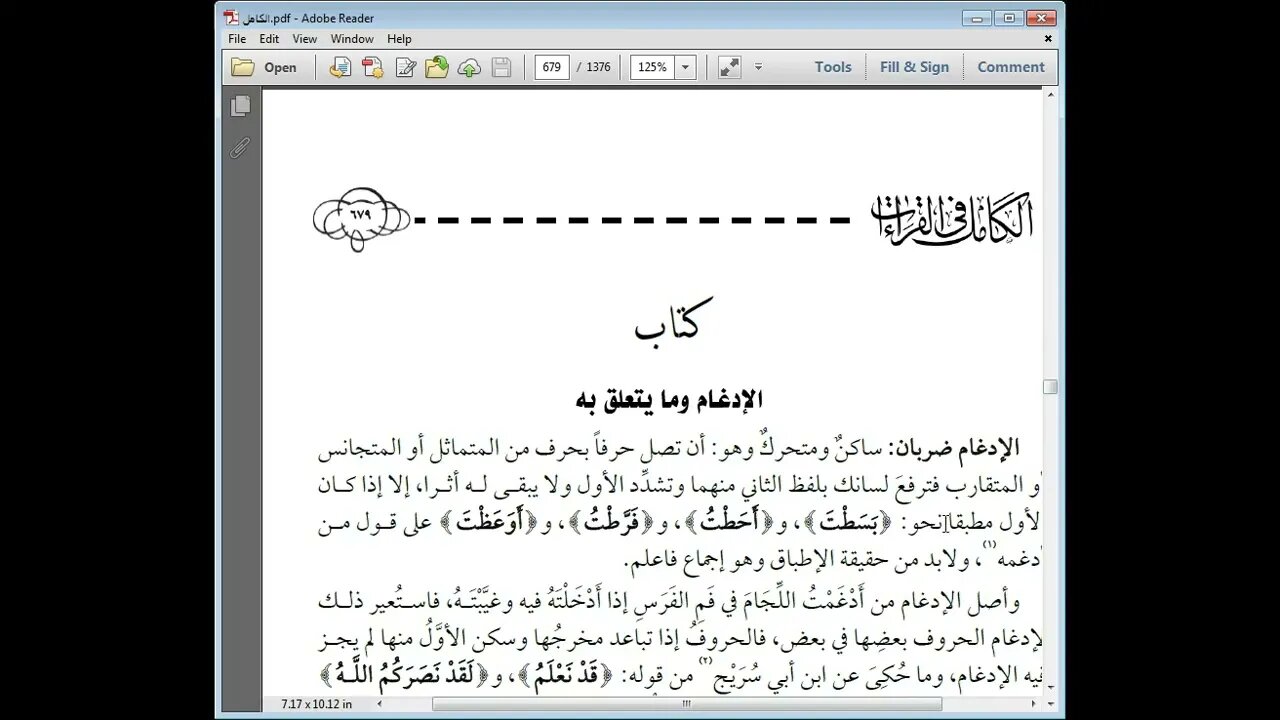 الكاهل.pdf - Adobe Reader
File Edit View Window Help
Open 679 / 1376 125% Tools Fill & Sign Comment
الكامل في القراءات ٦٧٩
كتاب
الإدغام وما يتعلق به
الإدغام ضربان: ساكنٌ ومتحركٌ وهو: أن تصل حرفاً بحرف من المتماثل أو المتجانس
و المتقارب فترفعَ لسانك بلفظ الثاني منهما وتشدِّد الأول ولا يبقـى لـه أثـرا، إلا إذا كـان
لأول مطبقا نحو: ﴿بَسَطْتَ﴾، و﴿أَحَطْتُ﴾، و﴿فَرَّطْتُ﴾، و﴿أَوَعَظْتَ﴾ على قـول مـن
دغمه(١)، ولابد من حقيقة الإطباق وهو إجماع فاعلم.
وأصل الإدغام من أَدْغَمْتُ اللِّجَامَ في فَمِ الفَرَسِ إذا أَدْخَلْتَهُ فيه وغيَّبْتَـهُ، فاستُعير ذلـك
لإدغام الحروف بعضِها في بعض، فالحروفُ إذا تباعد مخرجُها وسكن الأوَّلُ منها لم يجـز
فيه الإدغام، وما حُكِىَ عن ابن أبي سُرَيْج(٢) من قوله: ﴿قَدْ نَعْلَمُ﴾، و﴿لَقَدْ نَصَرَكُمُ اللَّـهُ﴾
7.17 x 10.12 in